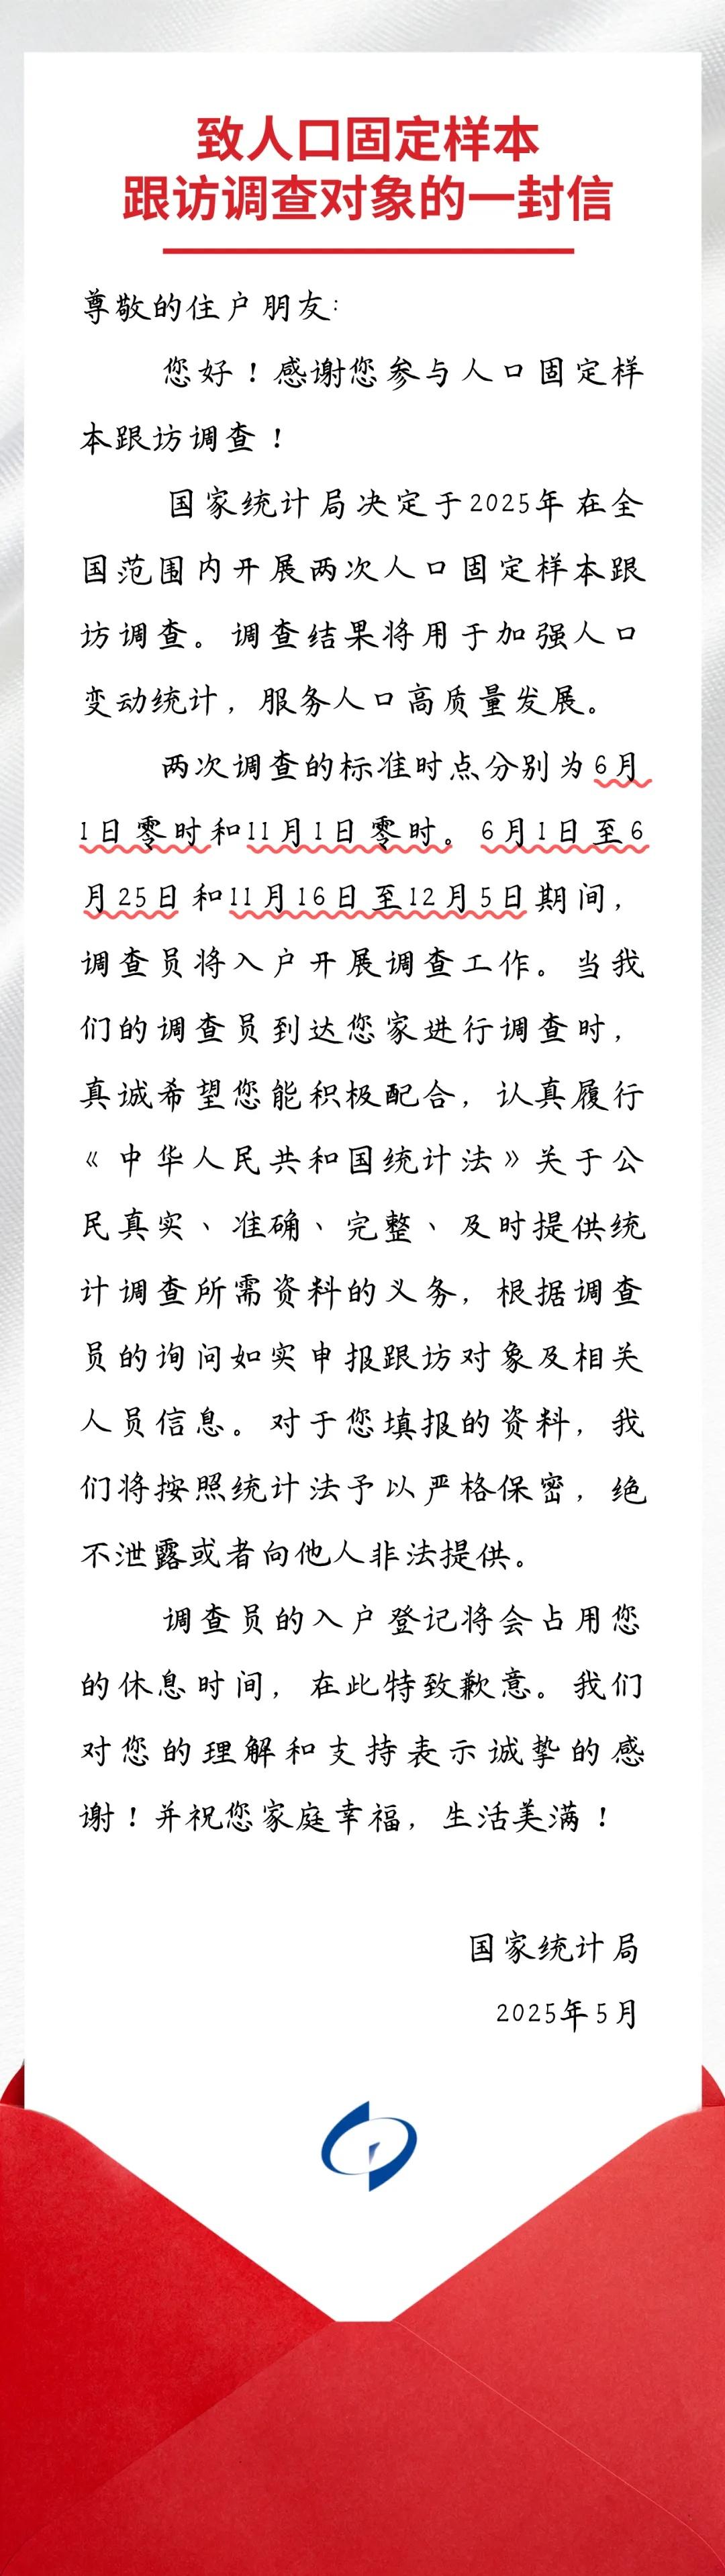 致人口固定样本
跟访调查对象的一封信
尊敬的住户朋友:
您好！感谢您参与人口固定样
本跟访调查！
国家统计局决定于2025年在全
国范围内开展两次人口固定样本跟
访调查。调查结果将用于加强人口
变动统计，服务人口高质量发展。
两次调查的标准时点分别为6月
1日零时和11月1日零时。6月1日至6
月25日和11月16日至12月5日期间，
调查员将入户开展调查工作。当我
们的调查员到达您家进行调查时，
真诚希望您能积极配合，认真履行
《中华人民共和国统计法》关于公
民真实、准确、完整、及时提供统
计调查所需资料的义务，根据调查
员的询问如实申报跟访对象及相关
人员信息。对于您填报的资料，我
们将按照统计法予以严格保密，绝
不泄露或者向他人非法提供。
调查员的入户登记将会占用您
的休息时间，在此特致歉意。我们
对您的理解和支持表示诚挚的感
谢！并祝您家庭幸福，生活美满！
国家统计局
2025年5月